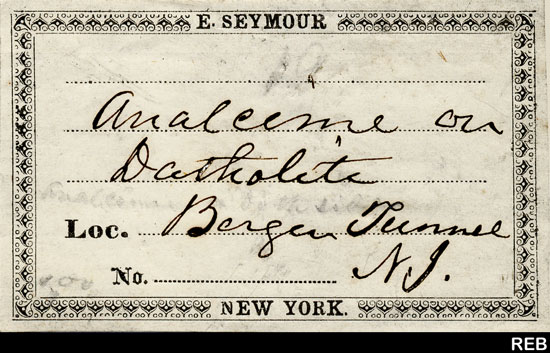 E. SEYMOUR
Analceime on
Datholite
Loc. Bergen Tunnel
No. N.J.
NEW YORK.
REB